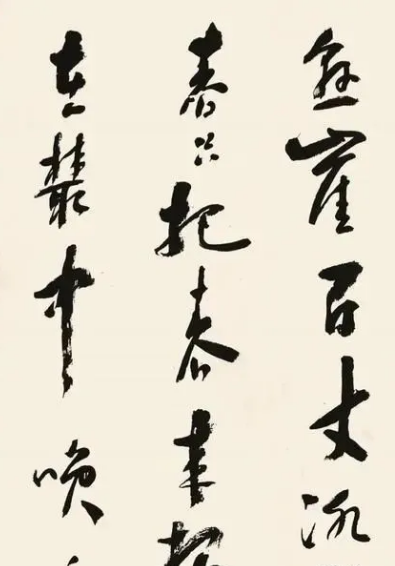 悬崖百丈冰
春只把春来
在叢中咲